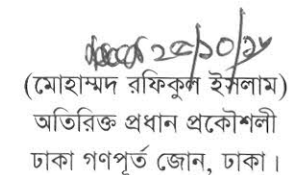 ২৫/১০/১৮
(মোহাম্মদ রফিকুল ইসলাম)
অতিরিক্ত প্রধান প্রকৌশলী
ঢাকা গণপূর্ত জোন, ঢাকা।